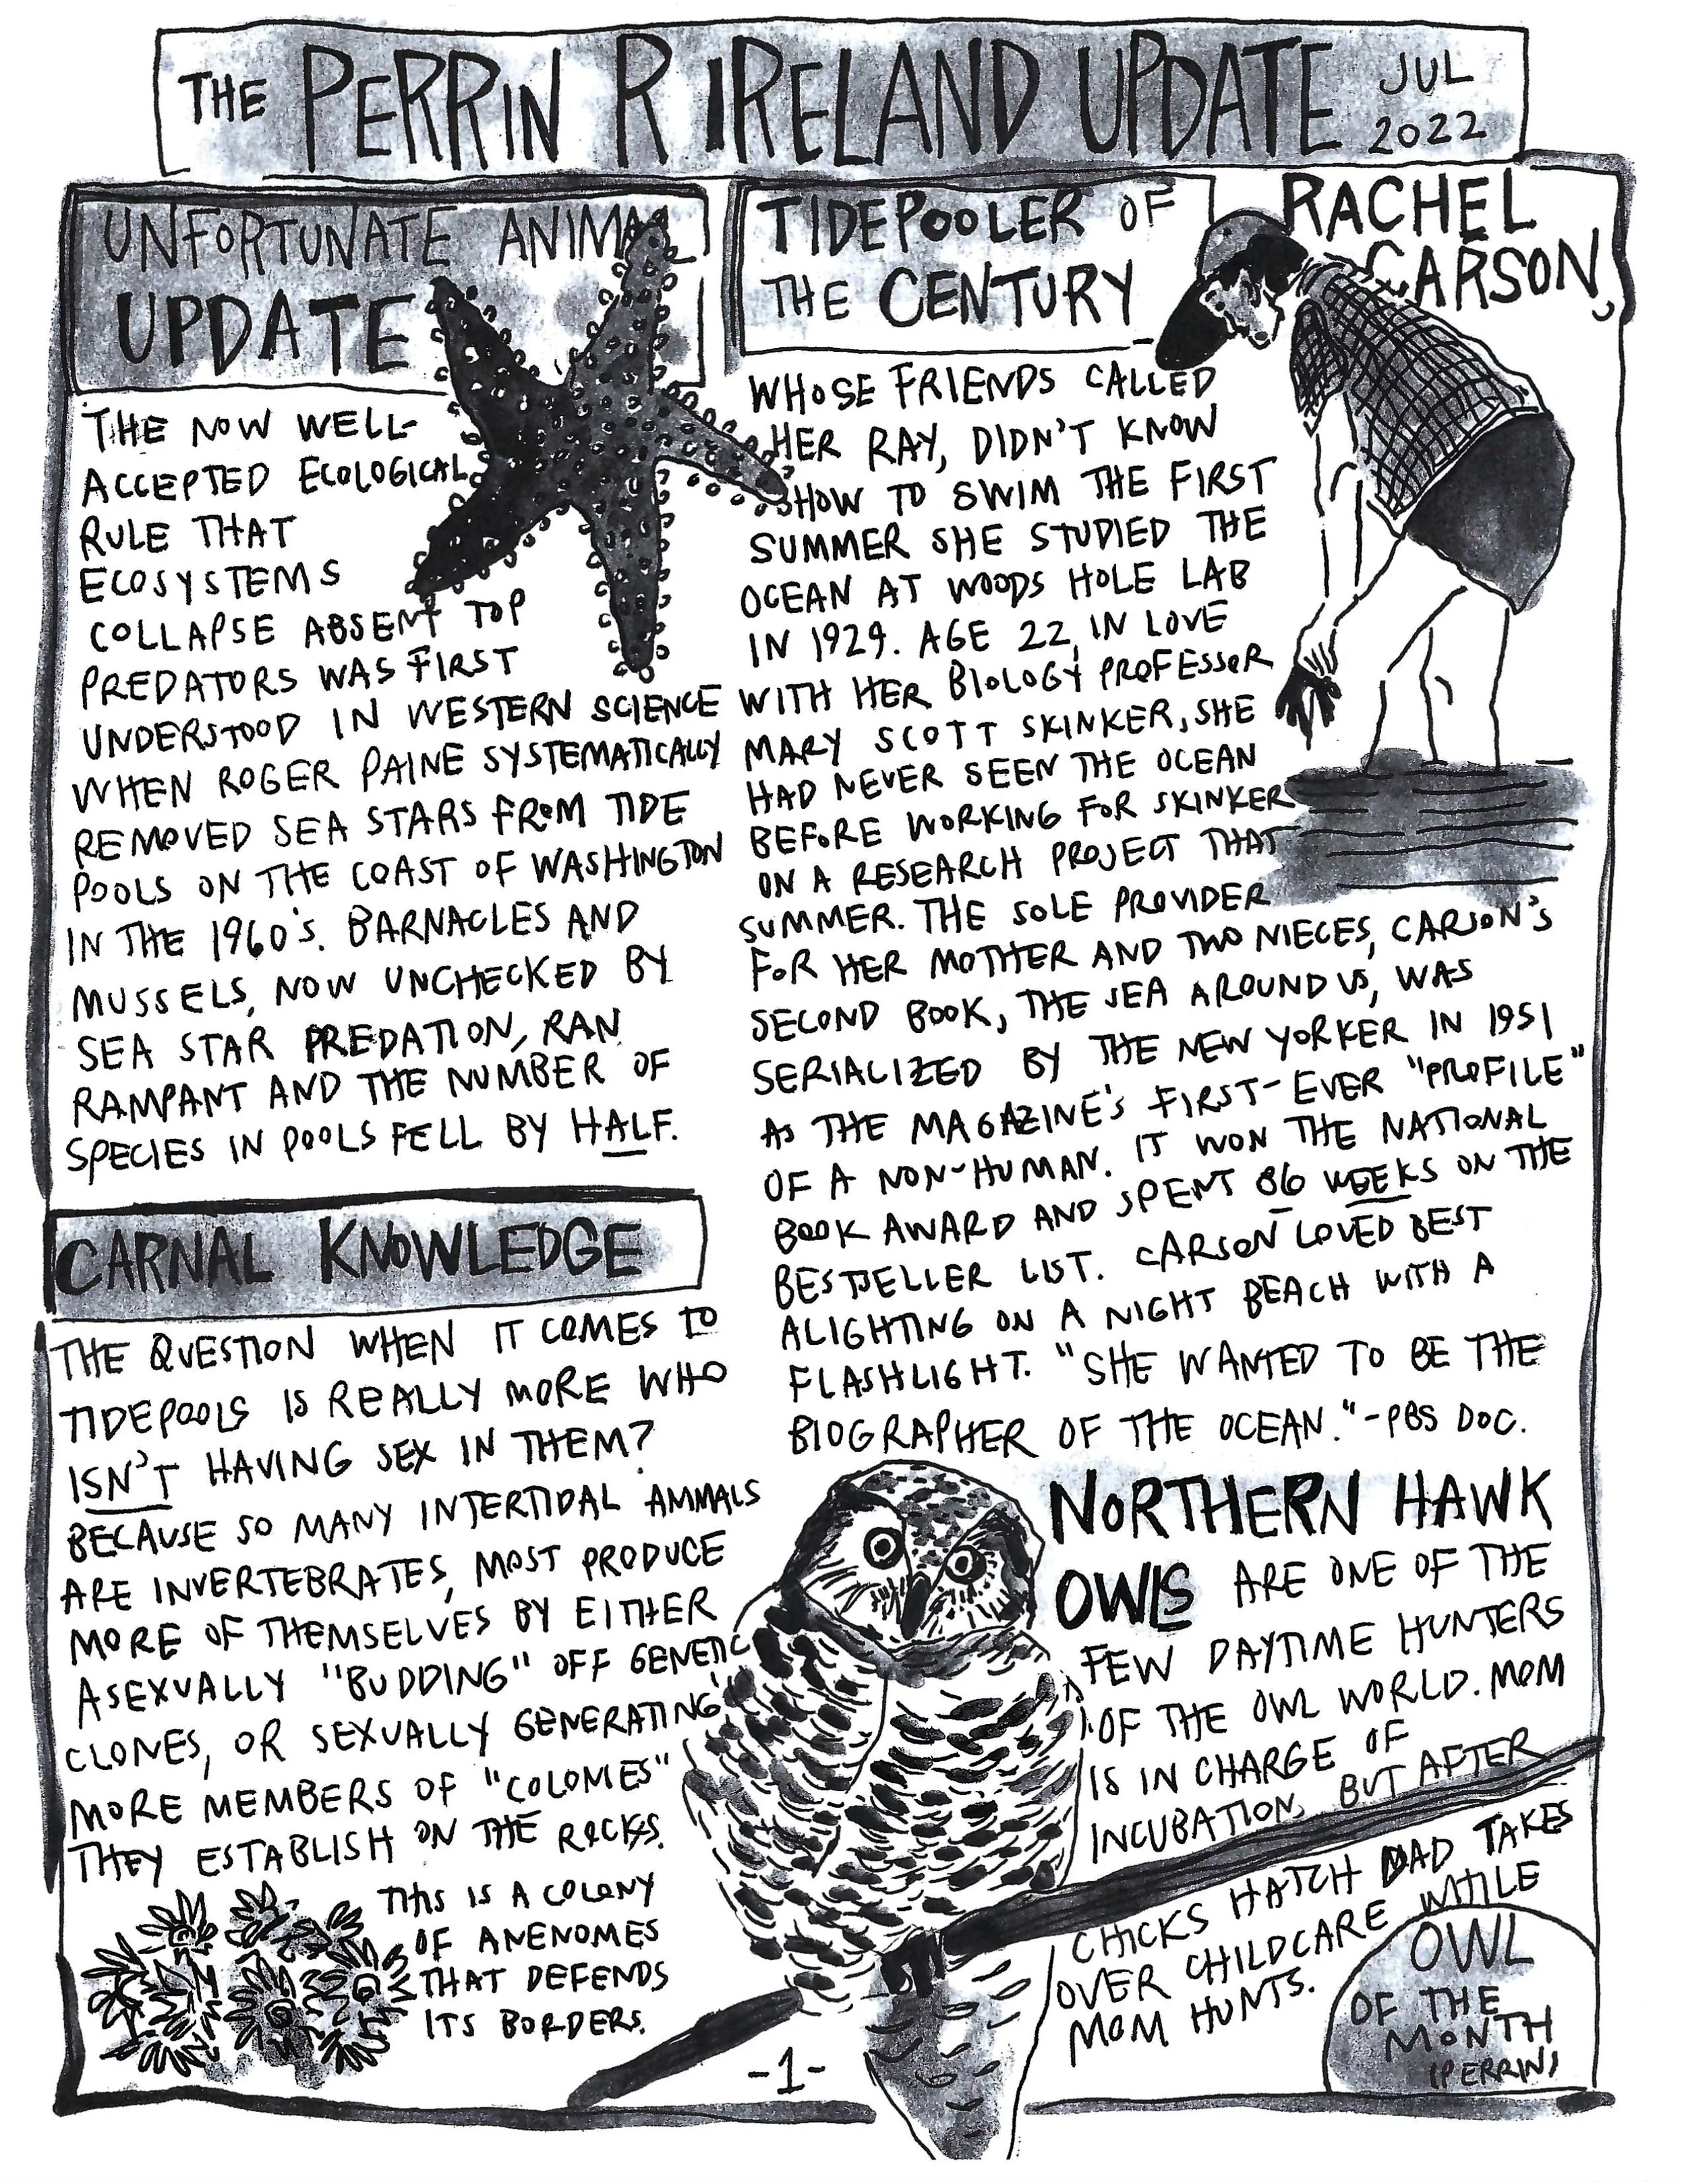 THE PERRIN R IRELAND UPDATE JUL 2022
UNFORTUNATE ANIMAL
UPDATE
THE NOW WELL-
ACCEPTED ECOLOGICAL
RULE THAT
ECOSYSTEMS
COLLAPSE ABSENT TOP
PREDATORS WAS FIRST
UNDERSTOOD IN WESTERN SCIENCE
WHEN ROGER PAINE SYSTEMATICALLY
REMOVED SEA STARS FROM TIDE
POOLS ON THE COAST OF WASHINGTON
IN THE 1960'S. BARNACLES AND
MUSSELS, NOW UNCHECKED BY
SEA STAR PREDATION, RAN
RAMPANT AND THE NUMBER OF
SPECIES IN POOLS FELL BY HALF.
CARNAL KNOWLEDGE
THE QUESTION WHEN IT COMES TO
TIDEPOOLS IS REALLY MORE WHO
ISN'T HAVING SEX IN THEM?
BECAUSE SO MANY INTERTIDAL ANIMALS
ARE INVERTEBRATES, MOST PRODUCE
MORE OF THEMSELVES BY EITHER
ASEXUALLY "BUDDING" OFF GENETIC
CLONES, OR SEXUALLY GENERATING
MORE MEMBERS OF "COLONIES"
THEY ESTABLISH ON THE ROCKS.
THIS IS A COLONY
OF ANENOMES
THAT DEFENDS
ITS BORDERS.
TIDEPOOLER OF
THE CENTURY
RACHEL
CARSON,
WHOSE FRIENDS CALLED
HER RAY, DIDN'T KNOW
HOW TO SWIM THE FIRST
SUMMER SHE STUDIED THE
OCEAN AT WOODS HOLE LAB
IN 1929. AGE 22, IN LOVE
WITH HER BIOLOGY PROFESSOR
MARY SCOTT SKINKER, SHE
HAD NEVER SEEN THE OCEAN
BEFORE WORKING FOR SKINKER
ON A RESEARCH PROJECT THAT
SUMMER. THE SOLE PROVIDER
FOR HER MOTHER AND TWO NIECES, CARSON'S
SECOND BOOK, THE SEA AROUND US, WAS
SERIALIZED BY THE NEW YORKER IN 1951
AS THE MAGAZINE'S FIRST-EVER "PROFILE"
OF A NON-HUMAN. IT WON THE NATIONAL
BOOK AWARD AND SPENT 86 WEEKS ON THE
BESTSELLER LIST. CARSON LOVED BEST
ALIGHTING ON A NIGHT BEACH WITH A
FLASHLIGHT. "SHE WANTED TO BE THE
BIOGRAPHER OF THE OCEAN." -PBS DOC.
NORTHERN HAWK
OWLS ARE ONE OF THE
FEW DAYTIME HUNTERS
OF THE OWL WORLD. MOM
IS IN CHARGE OF
INCUBATION, BUT AFTER
CHICKS HATCH DAD TAKES
OVER CHILDCARE WHILE
MOM HUNTS.
OWL
OF THE
MONTH
(PERRIN)
-1-